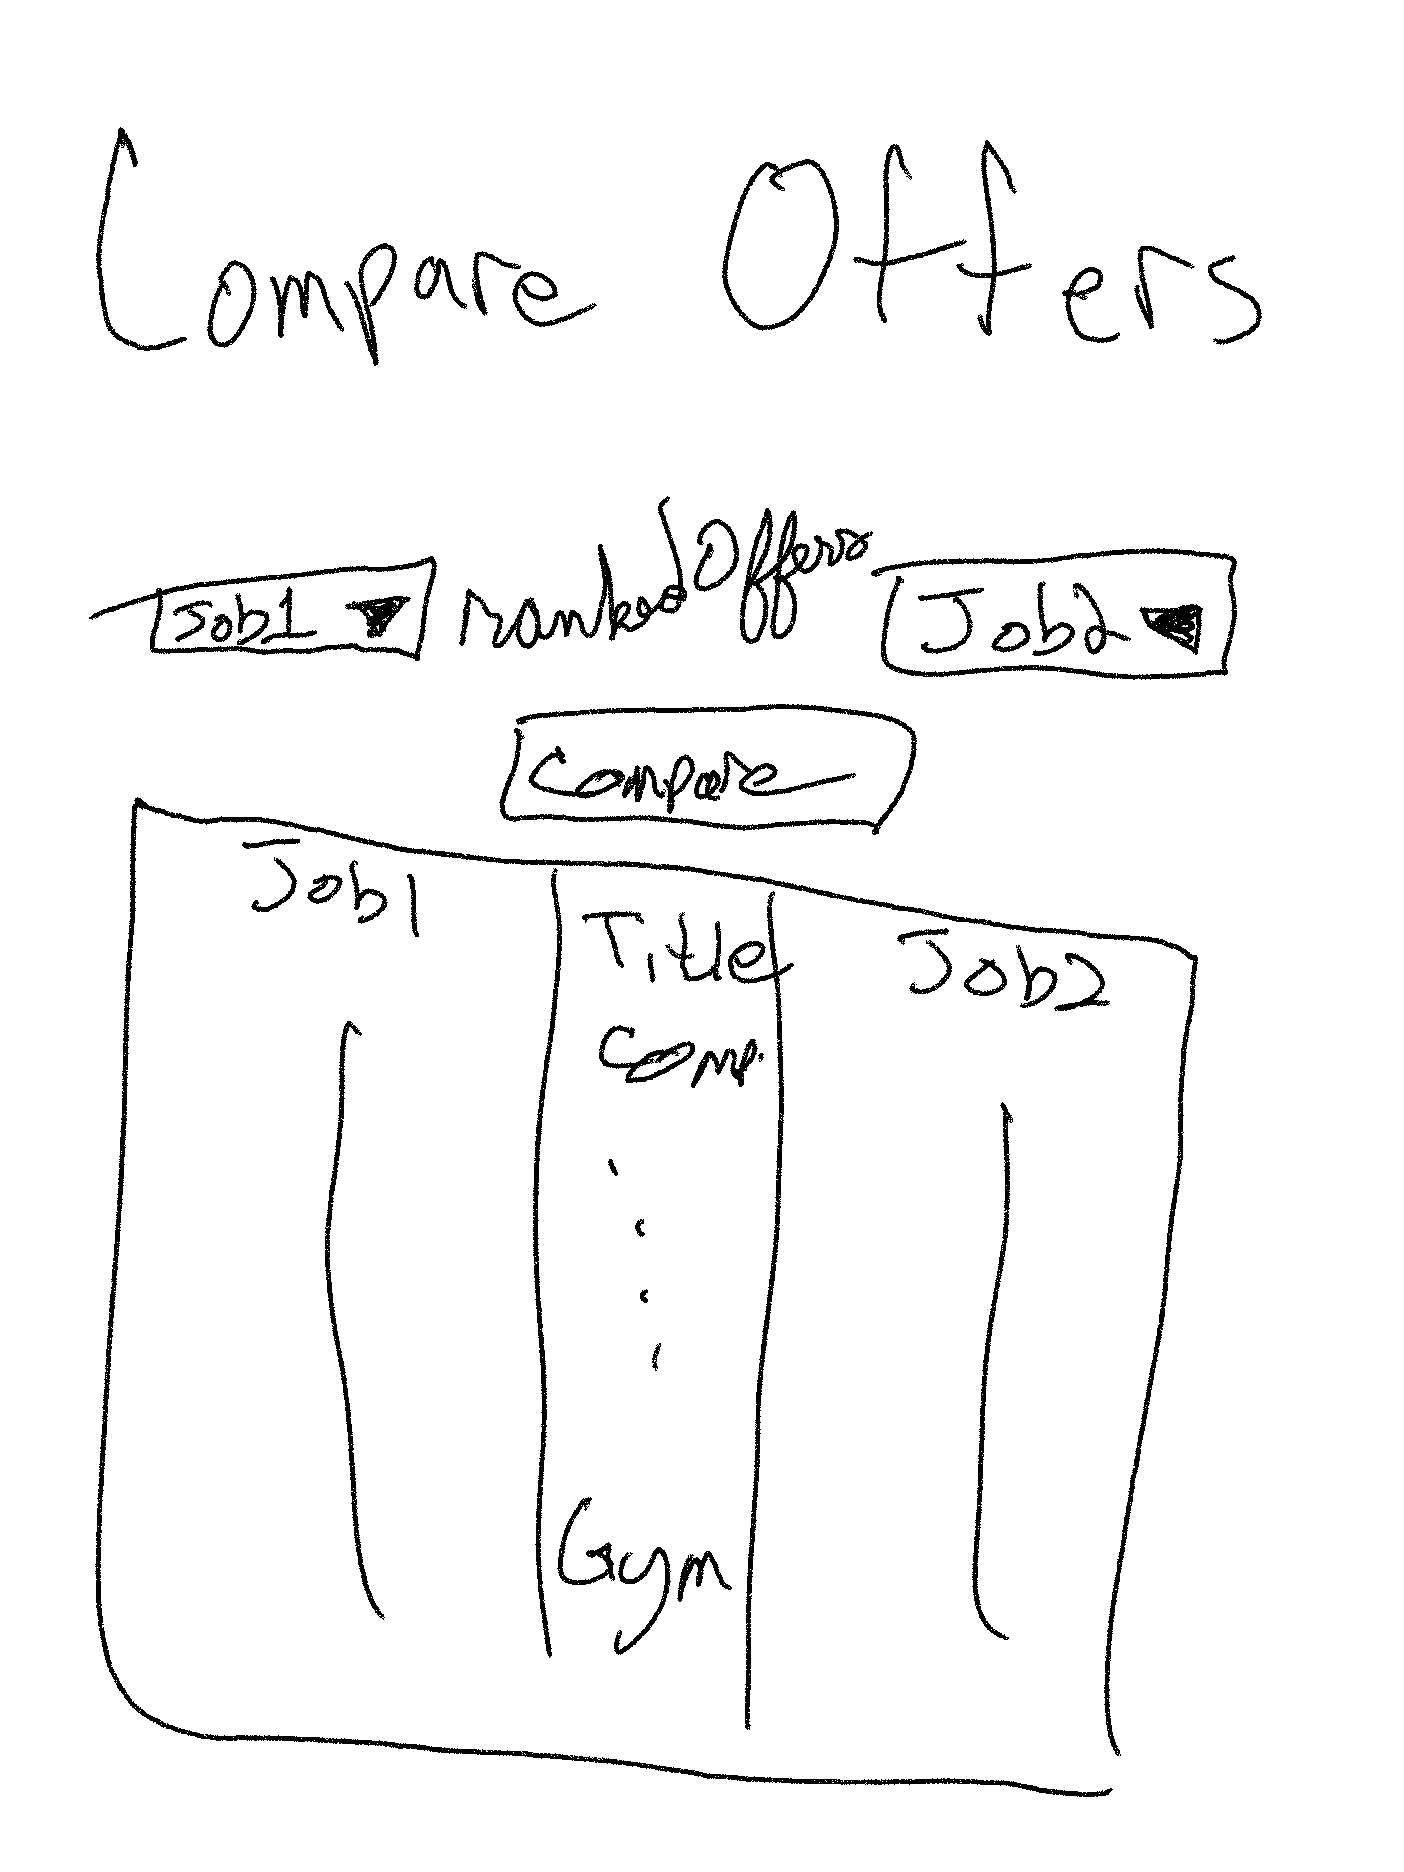 Compare Offers
Job1 ranked Offers Job2
Compare
Job1 Title Job2
Comp.
Gym